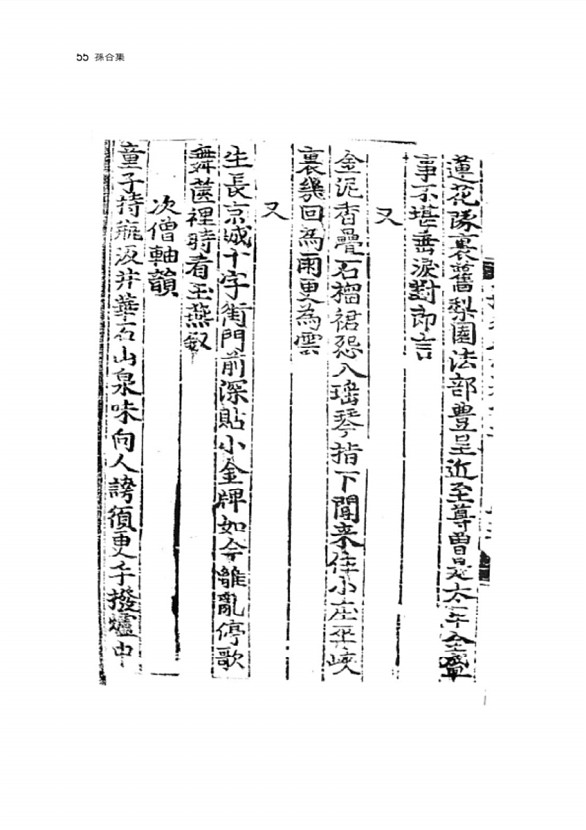 55 孫合集
蓮花隊裏舊梨園法部豊呈近至尊曾是太平全盛
事不堪垂淚對郎言
又
金泥香疊石榴裙怨入瑶琴指下聞来住小庄巫峽
裏幾回為雨更為雲
又
生長京城十字街門前深貼小金牌如今離亂停歌
舞篋裡時看玉燕釵
次僧軸韻
童子持瓶汲井華石山泉味向人誇須更手撥爐中